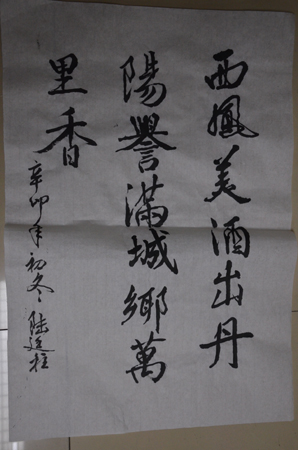 西鳳美酒出丹
陽譽滿城鄉萬
里香
辛卯年初冬 陸廷柱